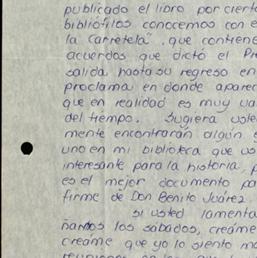 publicado el libro por cierto
bibliófilos conocemos con e
la Carretela", que contiene
acuerdos que dictó el Pre
salida, hasta su regreso en
proclama en donde aparec
que en realidad es muy va
del tiempo. Sugiera uste
mente encontrarán algún e
uno en mi biblioteca que us
interesante para la historia, p
es el mejor documento pa
firme de Don Benito Juárez.
Si usted lamenta
ñarnos los sábados, créame
créame que yo lo siento m